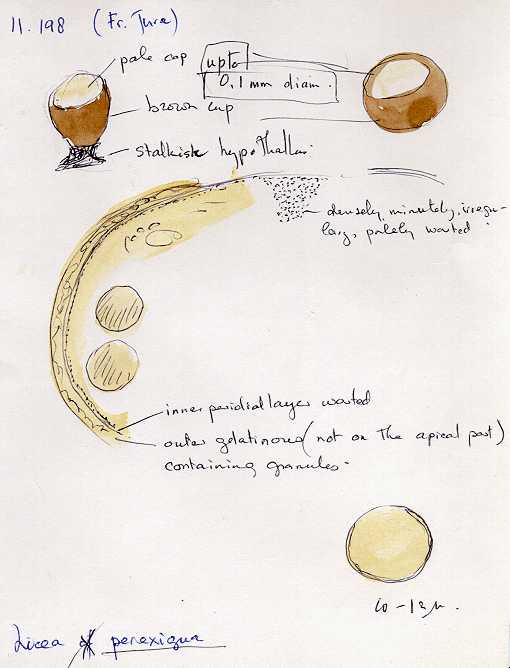 11.198 (Fr. Jura)
pale cap
up to
0,1 mm diam.
brown cup
stalkish hypothallus.
densely, minutely, irregu-
larly, palely warted
inner peridial layer warted
outer gelatinous (not on the apical part)
containing granules.
10-12µ.
Licea perexigua